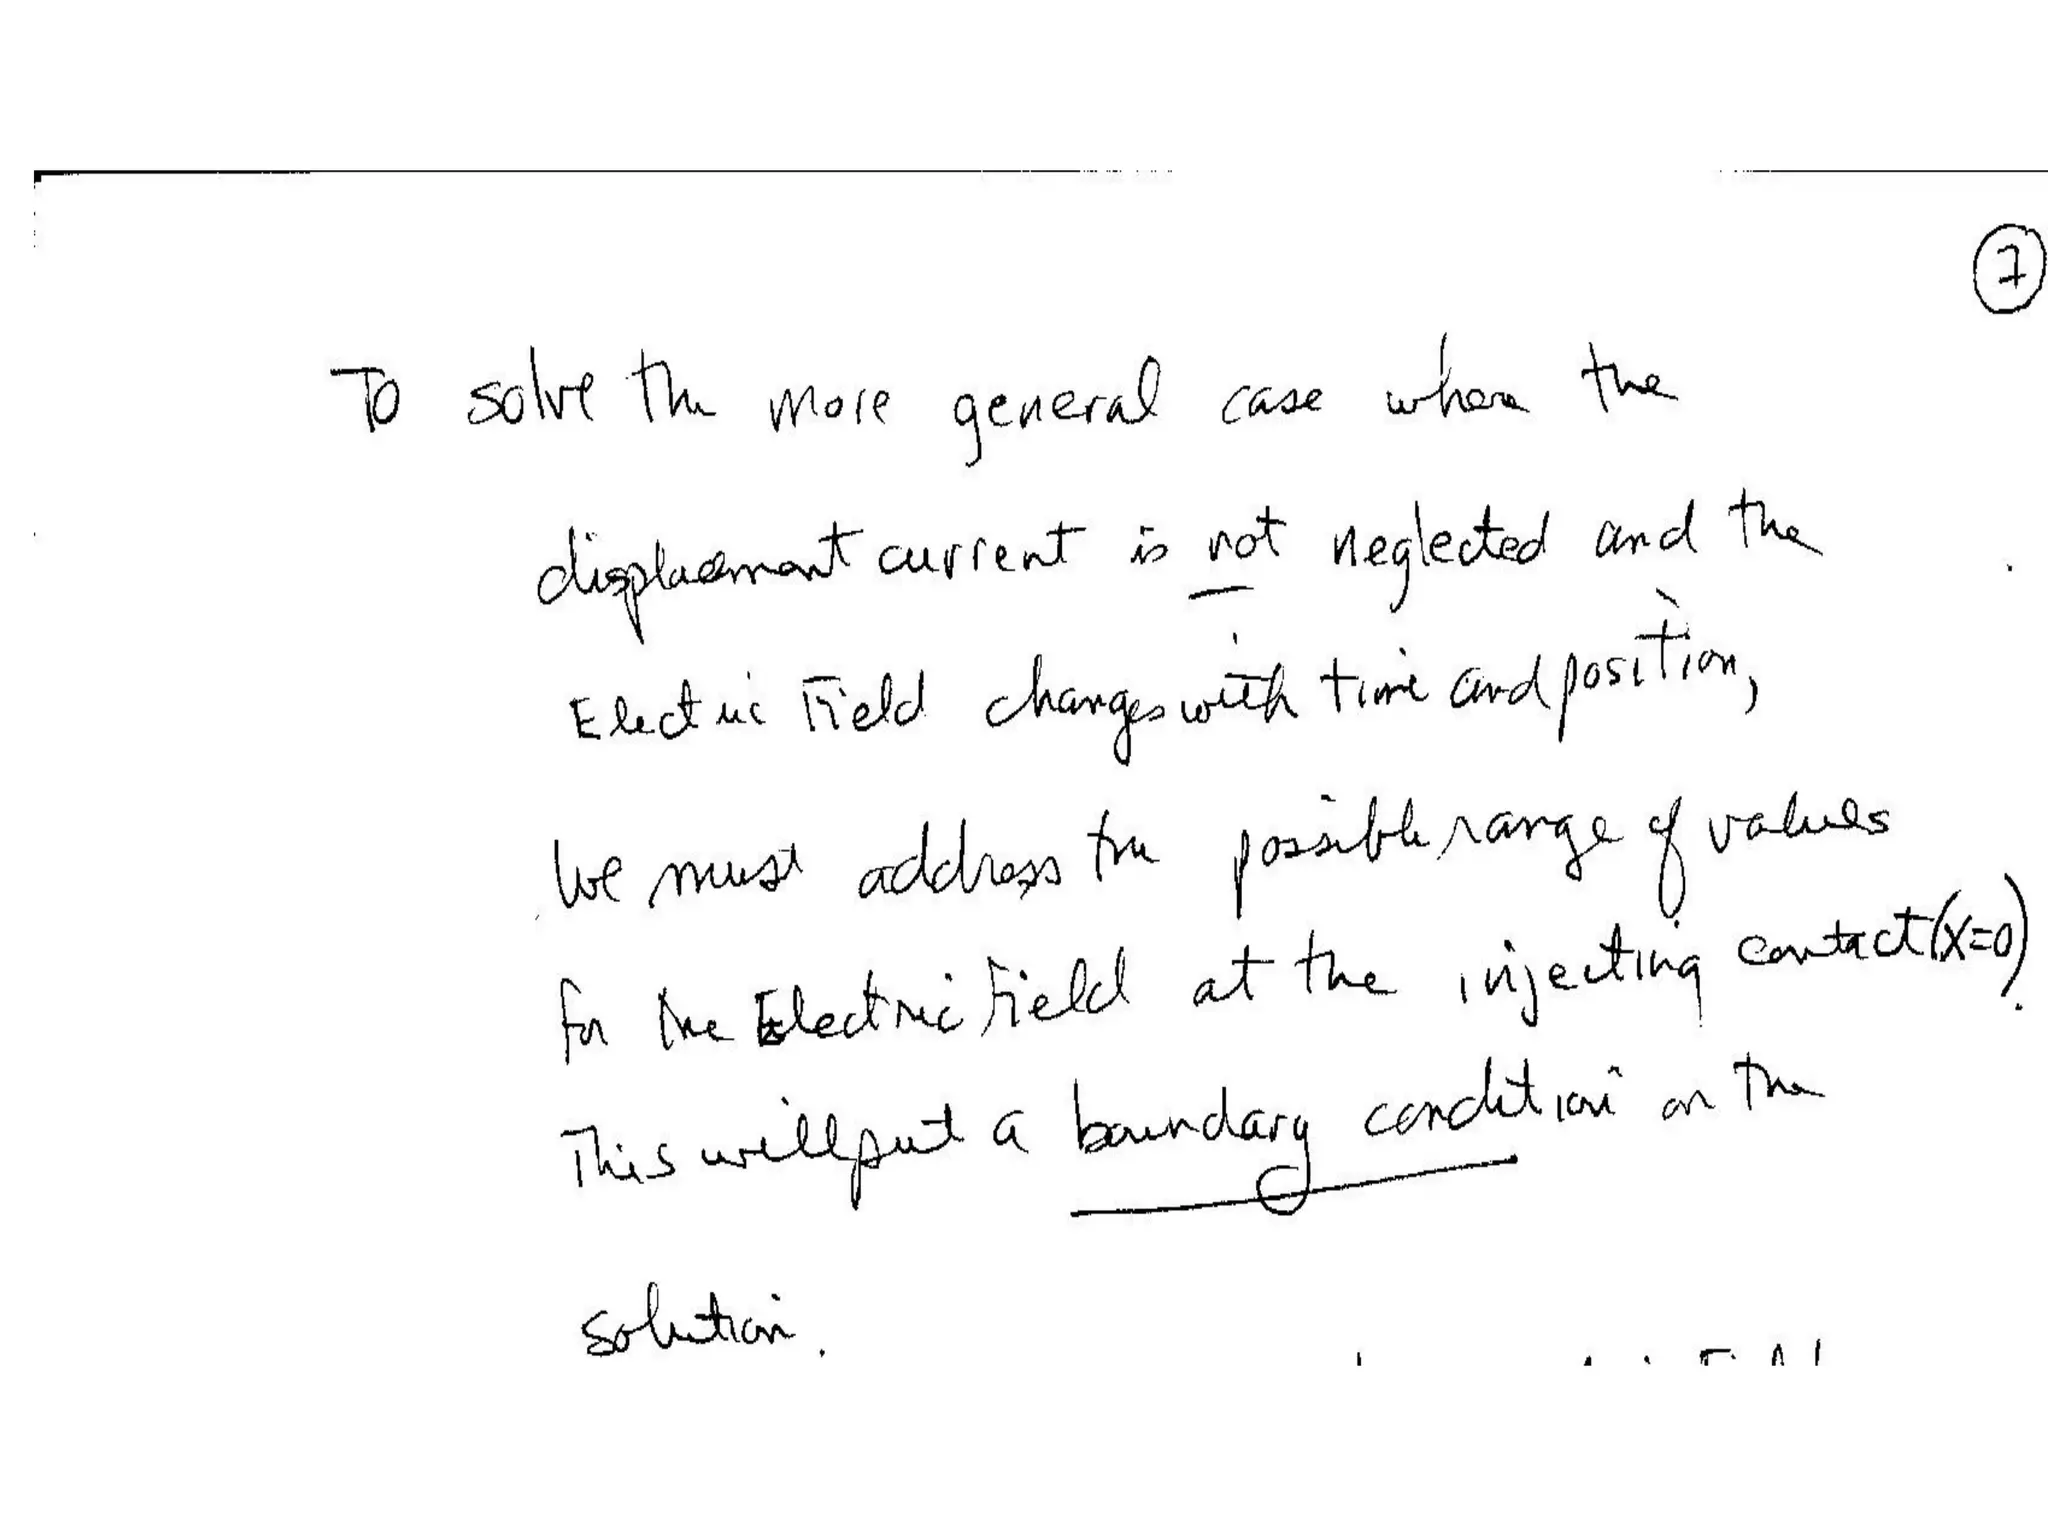 7
To solve the more general case where the
displacement current is not neglected and the
Electric Field changes with time and position,
we must address the possible range of values
for the Electric Field at the injecting contact (x=0).
This will put a boundary condition on the
solution.